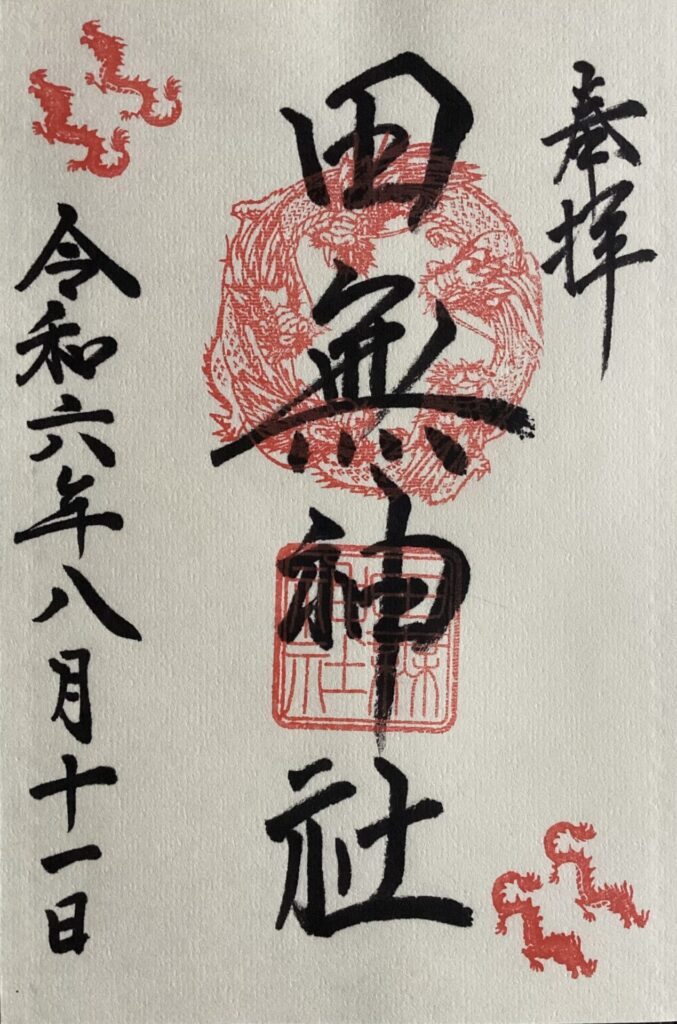 奉拝
田無神社
令和六年八月十一日